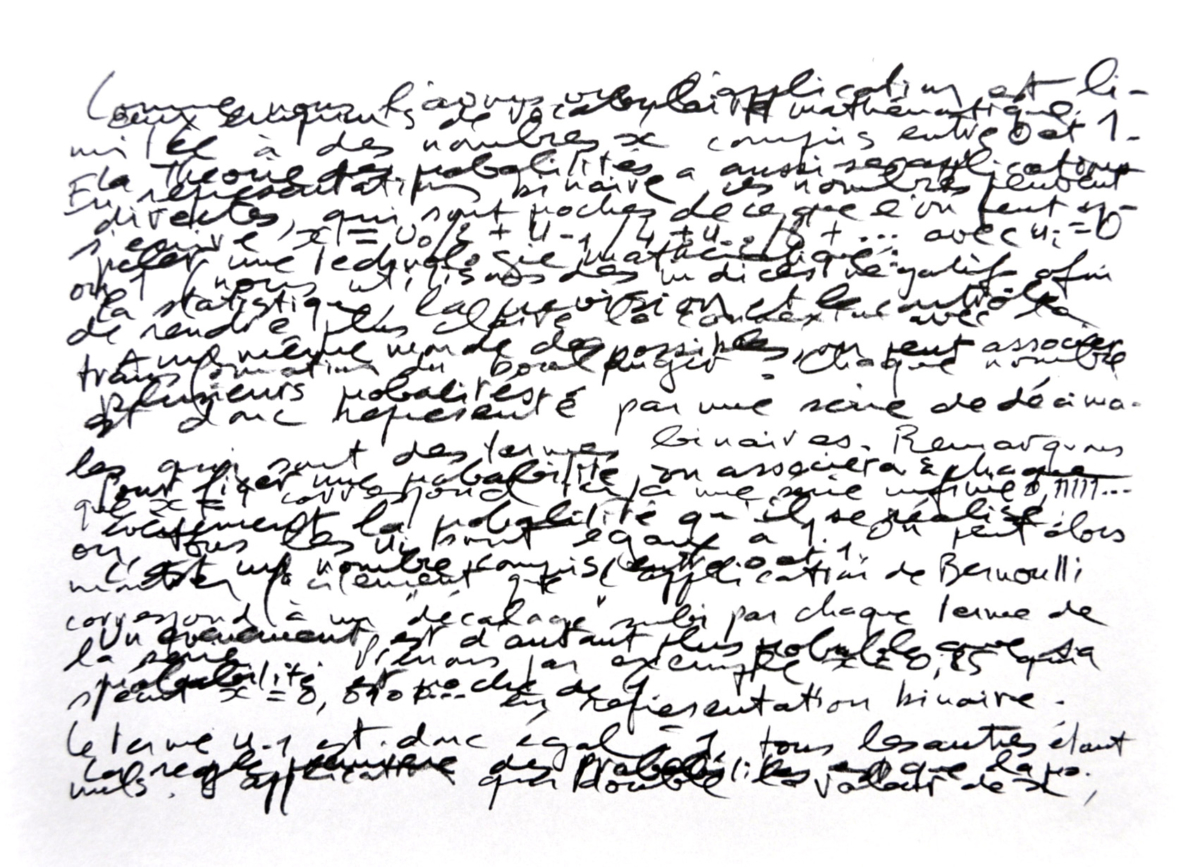 Comme nous l'avons vu, l'application est li-
ceux empreints de vocabulaire mathématique.
mitée à des nombres x compris entre 0 et 1.
La théorie des probabilités a aussi ses applications
En représentation binaire ces nombres peuvent
directes, qui sont proches de ce que l'on peut ap-
s'écrire x = u0/2 + u-1/4 + u-2/8 + ... avec ui = 0
peler une technologie mathématique:
ou 1 (nous utilisons des indices négatifs afin
la statistique, la prévision et le contrôle.
de rendre plus claire la connexion avec la
A un même monde des possibles, on peut associer
transformation du boulanger). Chaque nombre
plusieurs probabilités.
est donc représenté par une série de décima-
les qui sont des termes binaires. Remarquons
Pour fixer une probabilité on associera à chaque
que x = 1 correspond à une série infinie 0,11111...
événement la probabilité qu'il se réalise.
où tous les ui sont égaux à 1. On peut alors
C'est un nombre compris entre 0 et 1.
montrer facilement que l'application de Bernoulli
correspond à un "décalage" subi par chaque terme de
Un événement est d'autant plus probable que sa
la série. Prenons par exemple x = 0,25 qui
probabilité est proche de 1.
s'écrit x = 0,010... en représentation binaire.
Le terme u-1 est donc égal à 1, tous les autres étant
La règle première des probabilités est que la po-
nuls. L'application qui double la valeur de x,